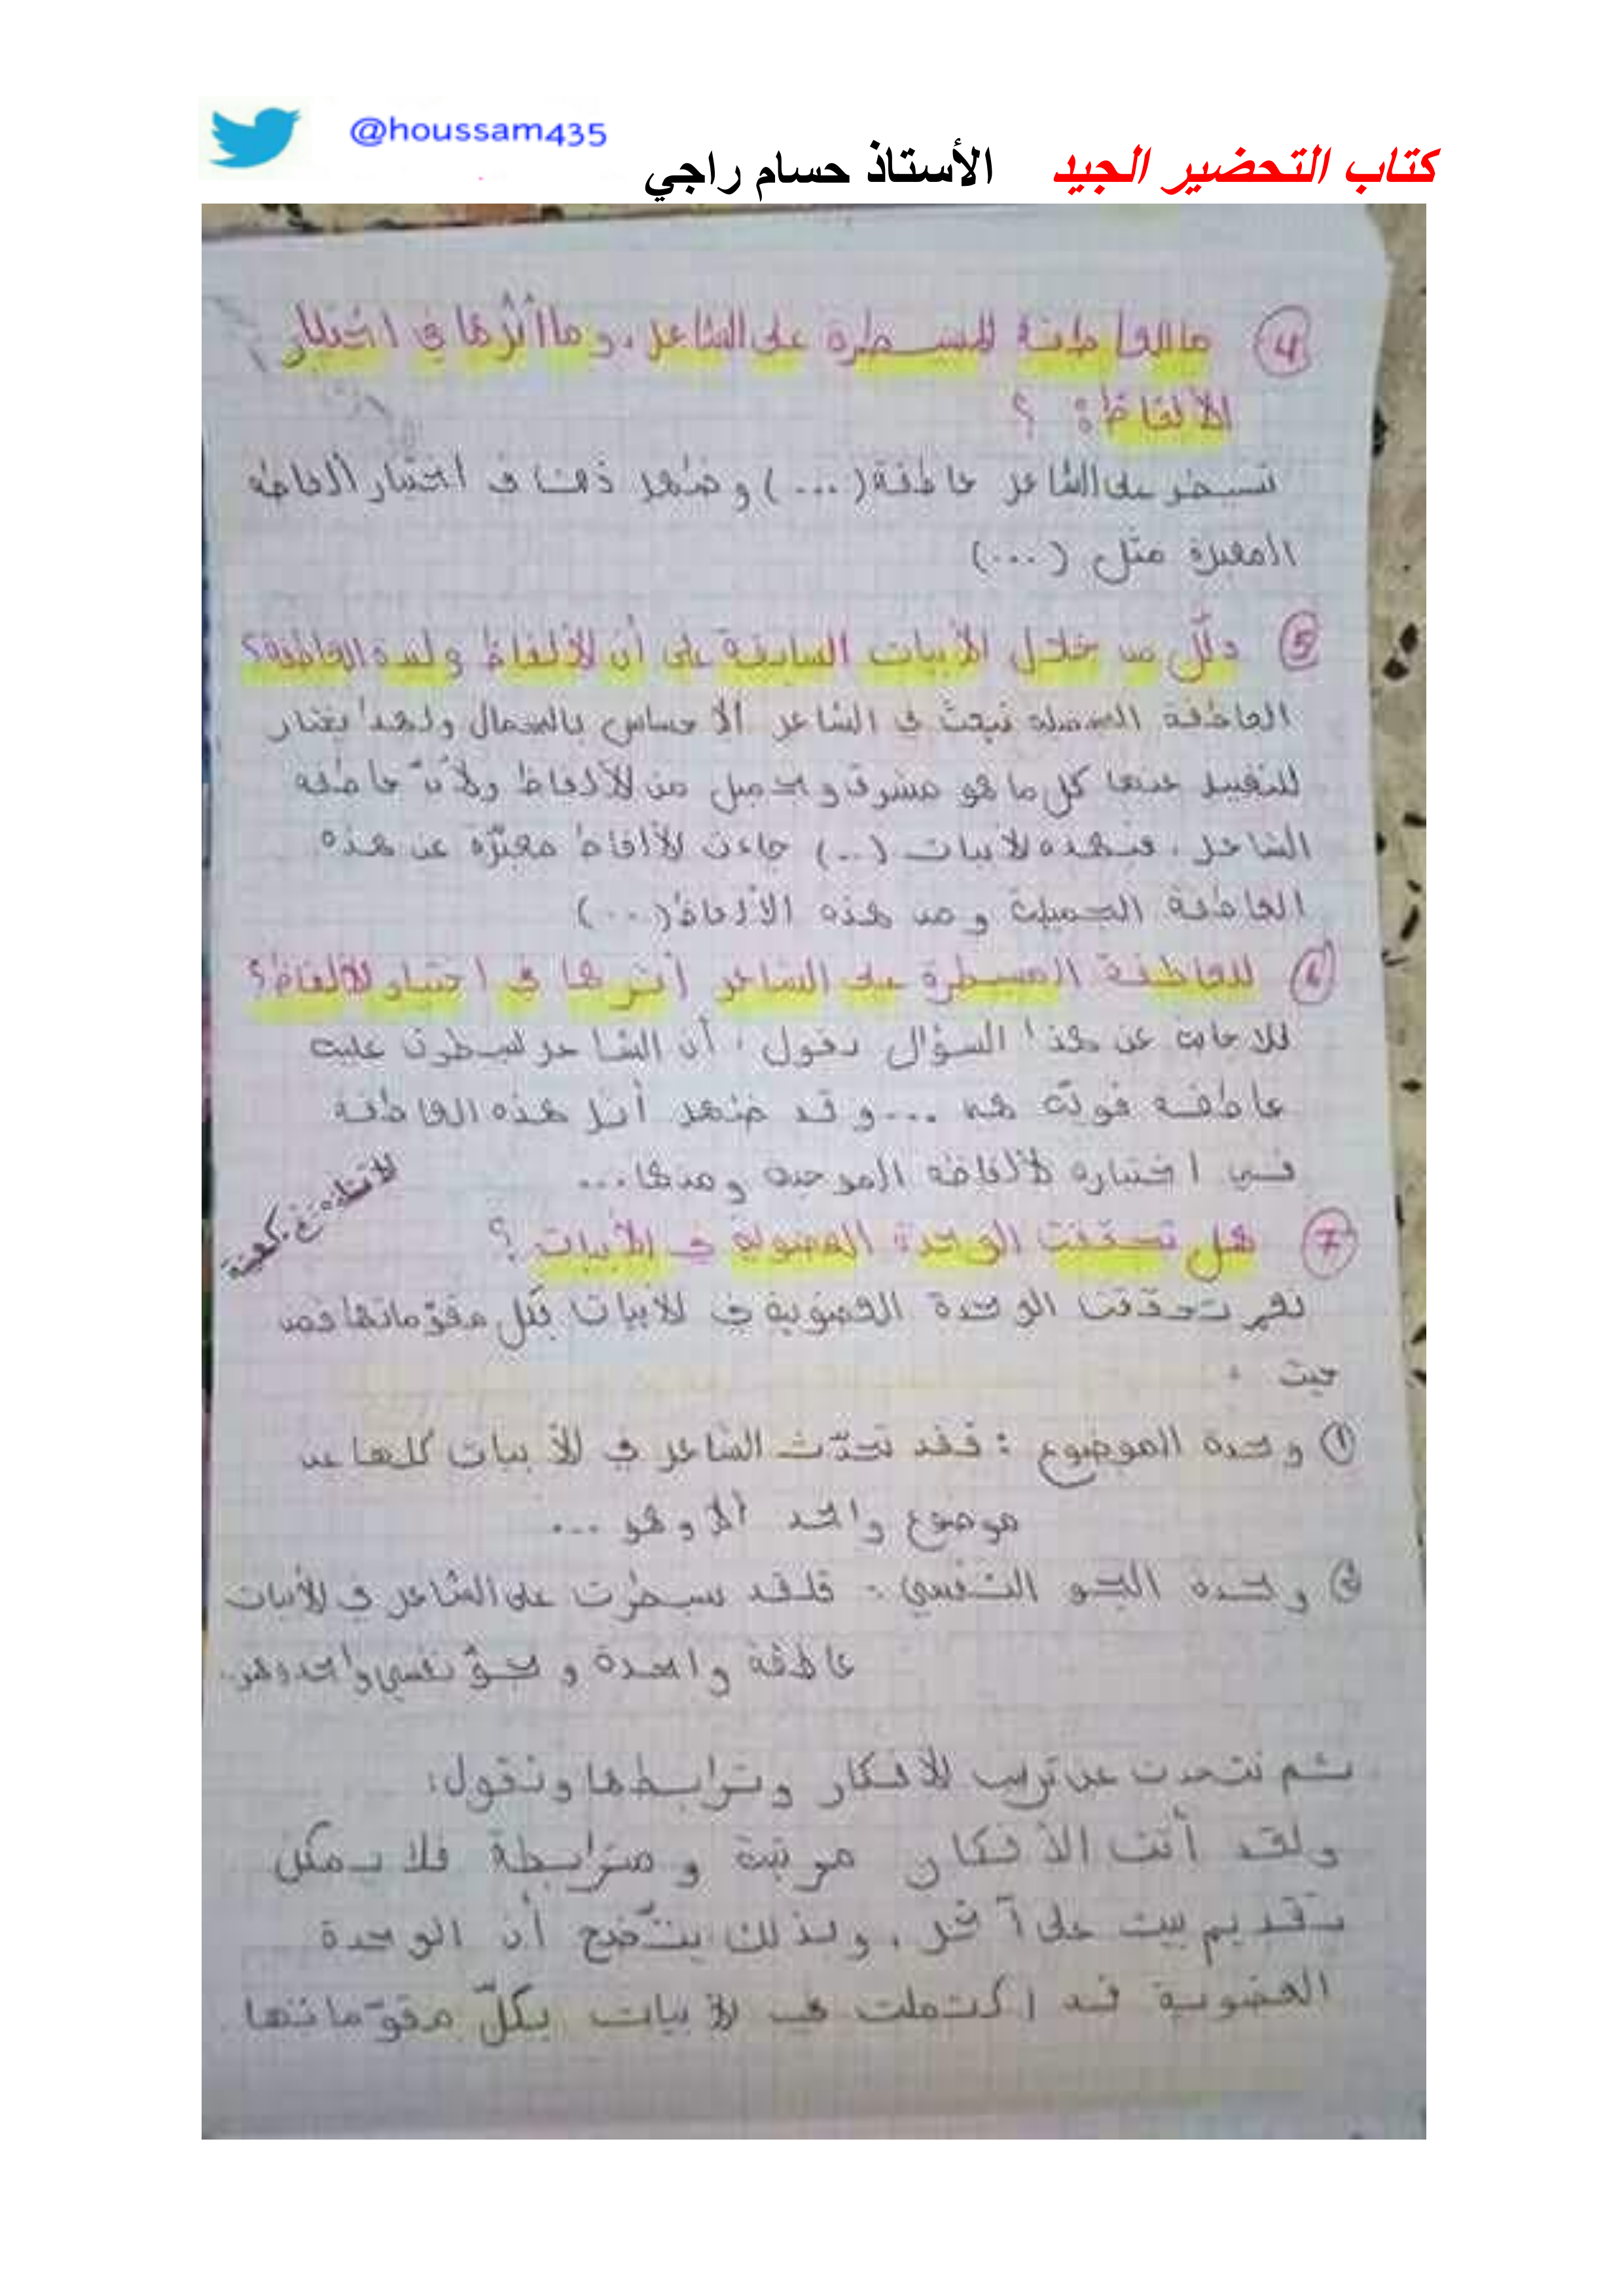 @houssam435
كتاب التحضير الجيد الأستاذ حسام راجي
4 ما العاطفة المسيطرة على الشاعر، وما أثرها في اختيار
الألفاظ؟
تسيطر على الشاعر عاطفة (...) وظهر ذلك في اختيار ألفاظه
المعبرة مثل (...)
5 دلّل من خلال الأبيات السابقة على أن الألفاظ وليدة العاطفة؟
العاطفة الجميلة تبعث في الشاعر الاحساس بالجمال ولهذا يختار
للتعبير عنها كل ما هو مشرق وجميل من الألفاظ ولأنّ عاطفة
الشاعر، في هذه الأبيات (...) جاءت الألفاظ معبّرة عن هذه
العاطفة الجميلة ومن هذه الألفاظ (...)
6 للعاطفة المسيطرة على الشاعر أثرها في اختيار الألفاظ؟
للاجابة عن هذا السؤال نقول: أن الشاعر سيطرت عليه
عاطفة قويّة هي ... وقد ظهر أثر هذه العاطفة
في اختياره لألفاظه الموحية ومنها...
7 هل تحققت الوحدة العضوية في الأبيات؟
نعم تحققت الوحدة العضوية في الأبيات بكل مقوّماتها فمن
حيث:
1 وحدة الموضوع: فقد تحدّث الشاعر في الأبيات كلها عن
موضوع واحد ألا وهو ...
2 وحدة الجو النّفسي: فلقد سيطرت على الشاعر في الأبيات
عاطفة واحدة وجوّ نفسي واحد وهو..
ثم نتحدث عن ترتيب الأفكار وترابطها ونقول:
ولقد أتت الأفكار مرتبة ومترابطة فلا يمكن
تقديم بيت على آخر، وبذلك يتّضح أن الوحدة
العضوية قد اكتملت في الأبيات بكلّ مقوّماتها